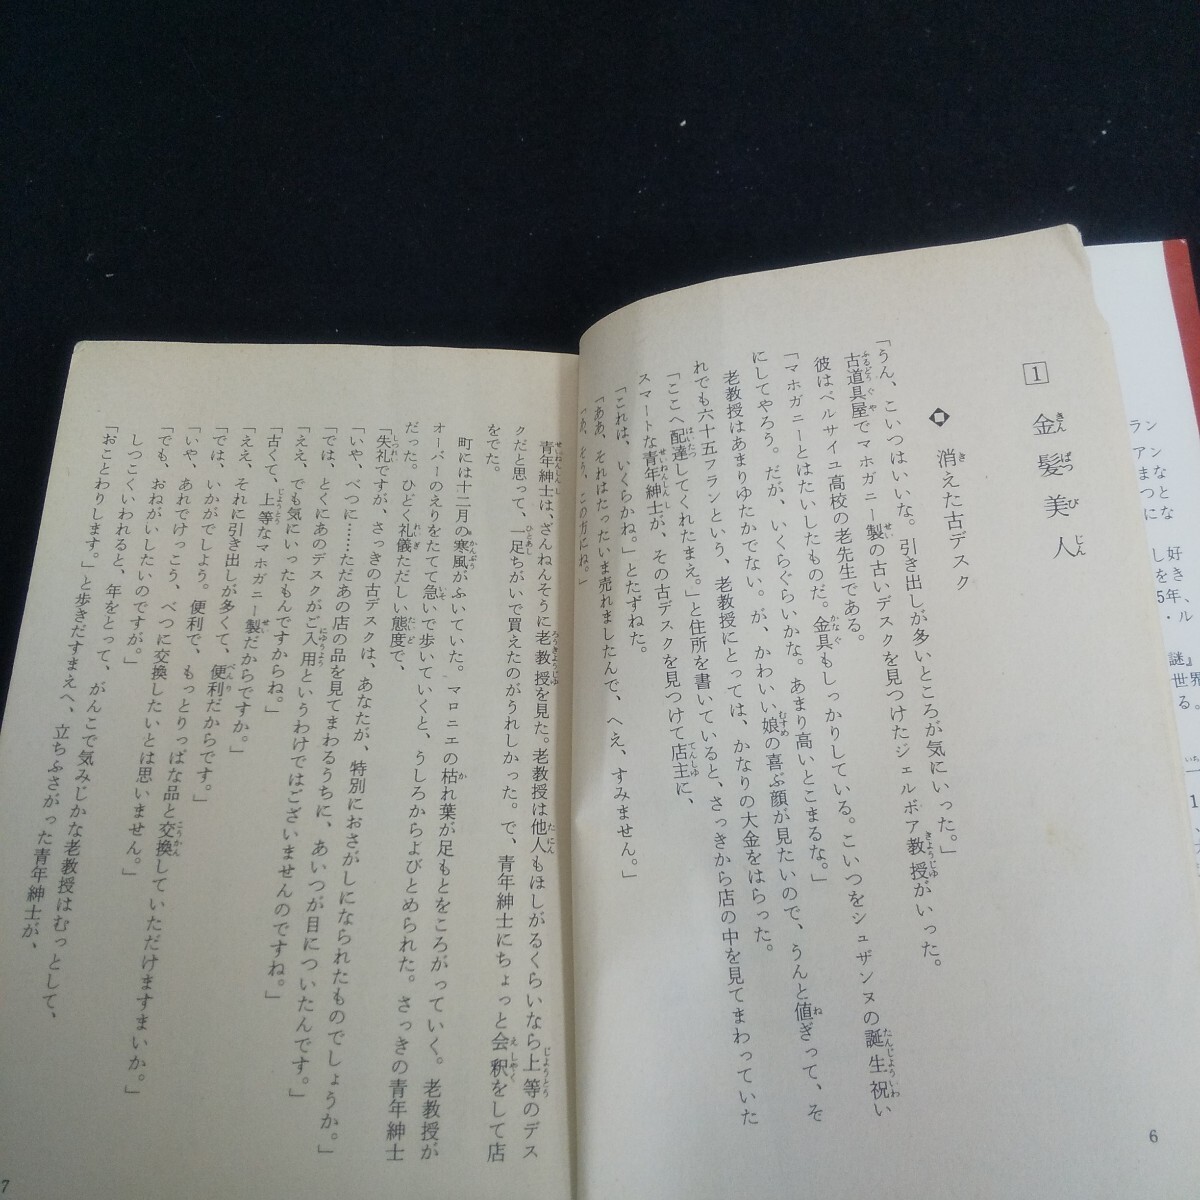 1 金髪美人
消えた古デスク
「うん、こいつはいいな。引き出しが多いところが気にいった。」
古道具屋でマホガニー製の古いデスクを見つけたジェルボア教授がいった。
彼はベルサイユ高校の老先生である。
「マホガニーとはたいしたものだ。金具もしっかりしている。こいつをシュザンヌの誕生祝い
にしてやろう。だが、いくらぐらいかな。あまり高いとこまるな。」
老教授はあまりゆたかでない。が、かわいい娘の喜ぶ顔が見たいので、うんと値ぎって、そ
れでも六十五フランという、老教授にとっては、かなりの大金をはらった。
「ここへ配達してくれたまえ。」と住所を書いていると、さっきから店の中を見てまわっていた
スマートな青年紳士が、その古デスクを見つけて店主に、
「これは、いくらかね。」とたずねた。
「ああ、それはたったいま売れましたんで、へえ、すみません。」
「あ、そう、この方にね。」
6
青年紳士は、ざんねんそうに老教授を見た。老教授は他人もほしがるくらいなら上等のデス
クだと思って、一足ちがいで買えたのがうれしかった。で、青年紳士にちょっと会釈をして店
をでた。
町には十二月の寒風がふいていた。マロニエの枯れ葉が足もとをころがっていく。老教授が
オーバーのえりをたてて急いで歩いていくと、うしろからよびとめられた。さっきの青年紳士
だった。ひどく礼儀ただしい態度で、
「失礼ですが、さっきの古デスクは、あなたが、特別におさがしになられたものでしょうか。」
「いや、べつに……ただあの店の品を見てまわるうちに、あいつが目についたんです。」
「では、とくにあのデスクがご入用というわけではございませんのですね。」
「ええ、でも気にいったもんですからね。」
「古くて、上等なマホガニー製だからですか。」
「ええ、それに引き出しが多くて、便利だからです。」
「では、いかがでしよう。便利で、もっとりっぱな品と交換していただけますまいか。」
「いや、あれでけっこう、べつに交換したいとは思いません。」
「でも、おねがいしたいのですが。」
しつこくいわれると、年をとって、がんこで気みじかな老教授はむっとして、
「おことわりします。」と歩きだすまえへ、立ちふさがった青年紳士が、
7